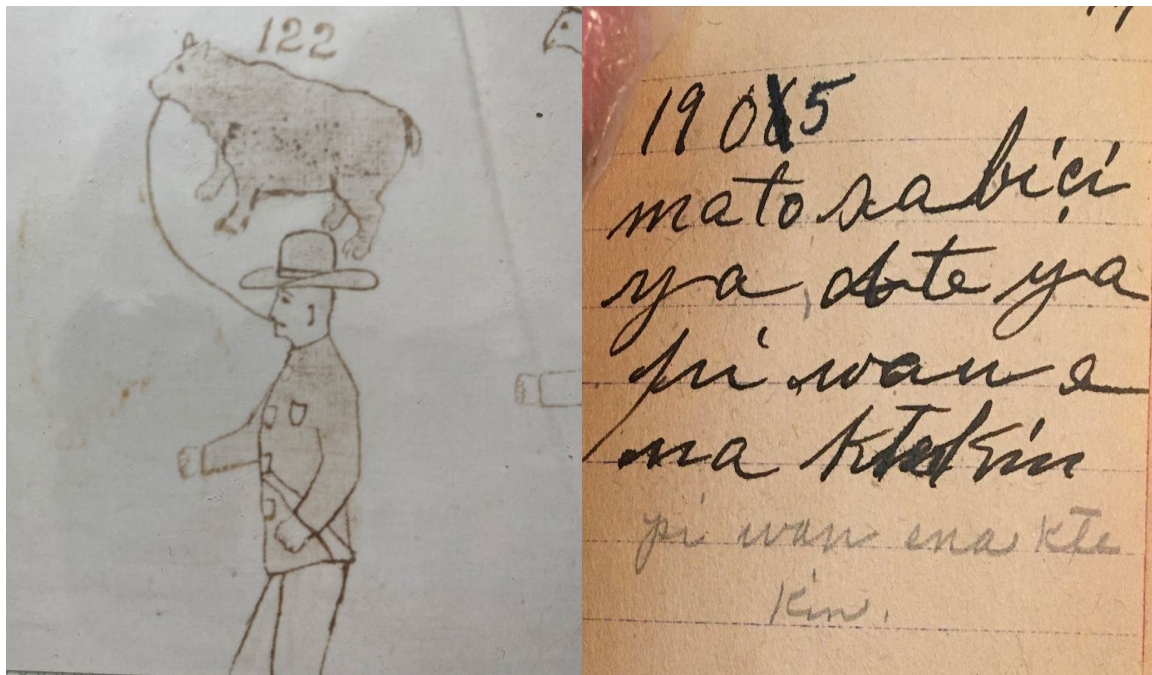 122
1905
mato sabici
ya, ate ya
pi wan e
na kte kin
pi wan ena kte
kin.